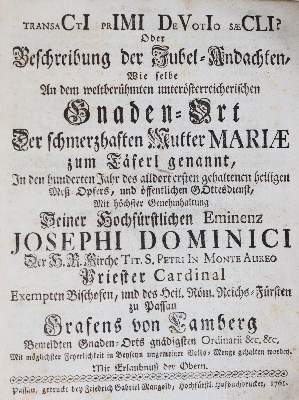 TRANSACtI PrIMI DeVotIo sæCLI?
Oder
Beschreibung der Jubel-Andachten,
Wie selbe
An dem weltberühmten unterösterreicherischen
Gnaden-Ort
Der schmerzhaften Mutter MARIÆ
zum Täferl genannt,
In den hunderten Jahr des alldort ersten gehaltenen heiligen
Meß Opfers, und öffentlichen GOttesdienst,
Mit höchster Genehmhaltung
Seiner Hochfürstlichen Eminenz
JOSEPHI DOMINICI
Der H. R. Kirche TIT. S. PETRI IN MONTE AUREO
Priester Cardinal
Exempten Bischofen, und des Heil. Röm. Reichs-Fürsten
zu Passau
Grafens von Lamberg
Bemeldten Gnaden-Orts gnädigsten Ordinarii &c. &c.
Mit möglichster Feyerlichkeit in Beyseyn ungemeiner Volks-Menge gehalten worden.
Mit Erlaubnuß der Obern.
Passau, gedruckt bey Friedrich Gabriel Mangold, Hochfürstl. Hofbuchdrucker, 1761.